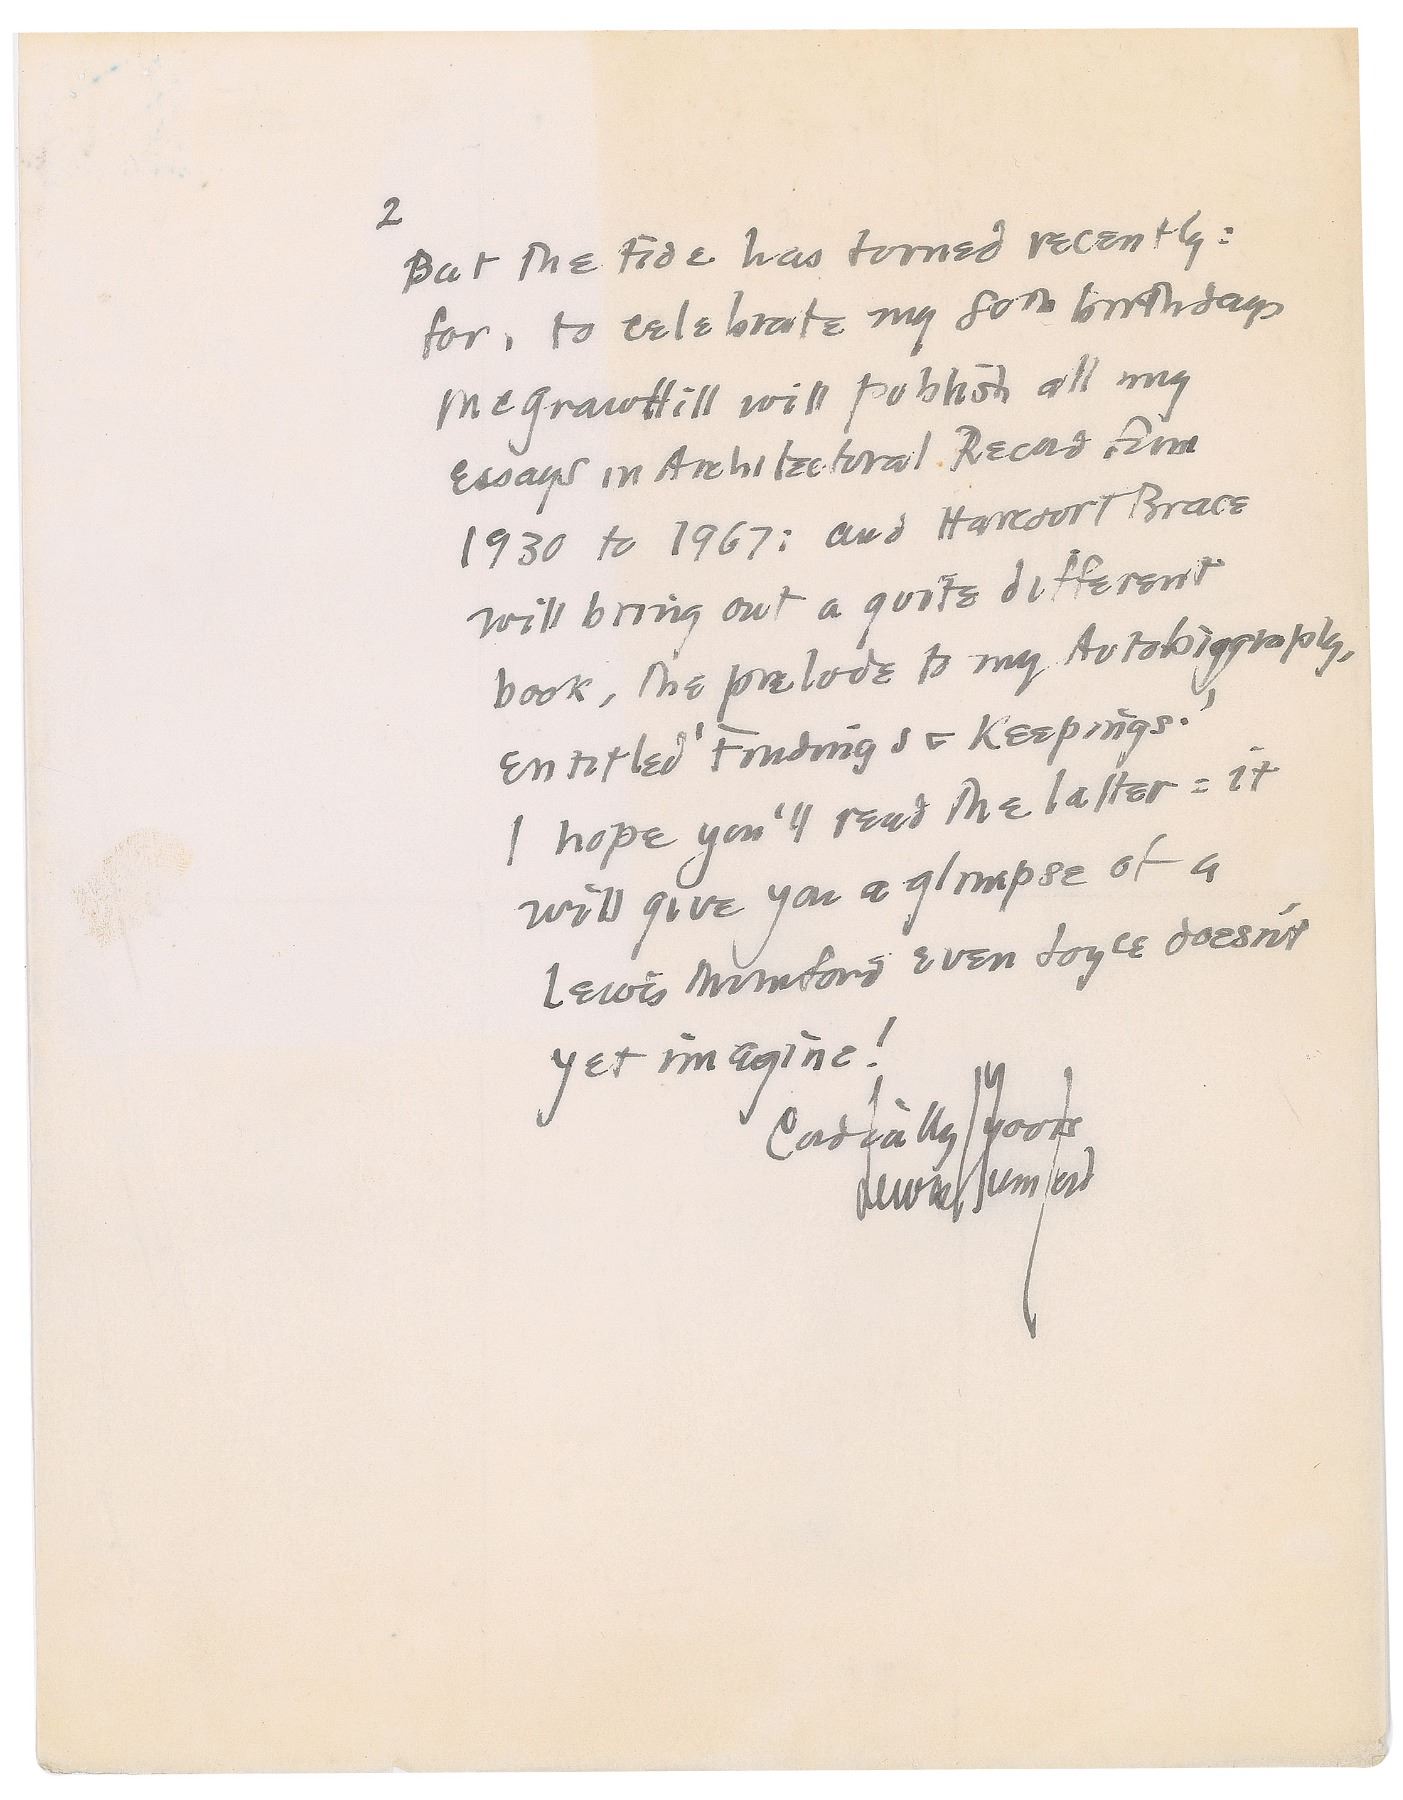 2
But the tide has turned recently:
for, to celebrate my 80th birthday
McGrawHill will publish all my
essays in Architectural Record from
1930 to 1967: and Harcourt Brace
will bring out a quite different
book, the prelude to my Autobiography,
entitled 'Findings & Keepings.'
I hope you'll read the latter: it
will give you a glimpse of a
Lewis Mumford even Joyce doesn't
yet imagine!
Cordially yours
Lewis Mumford